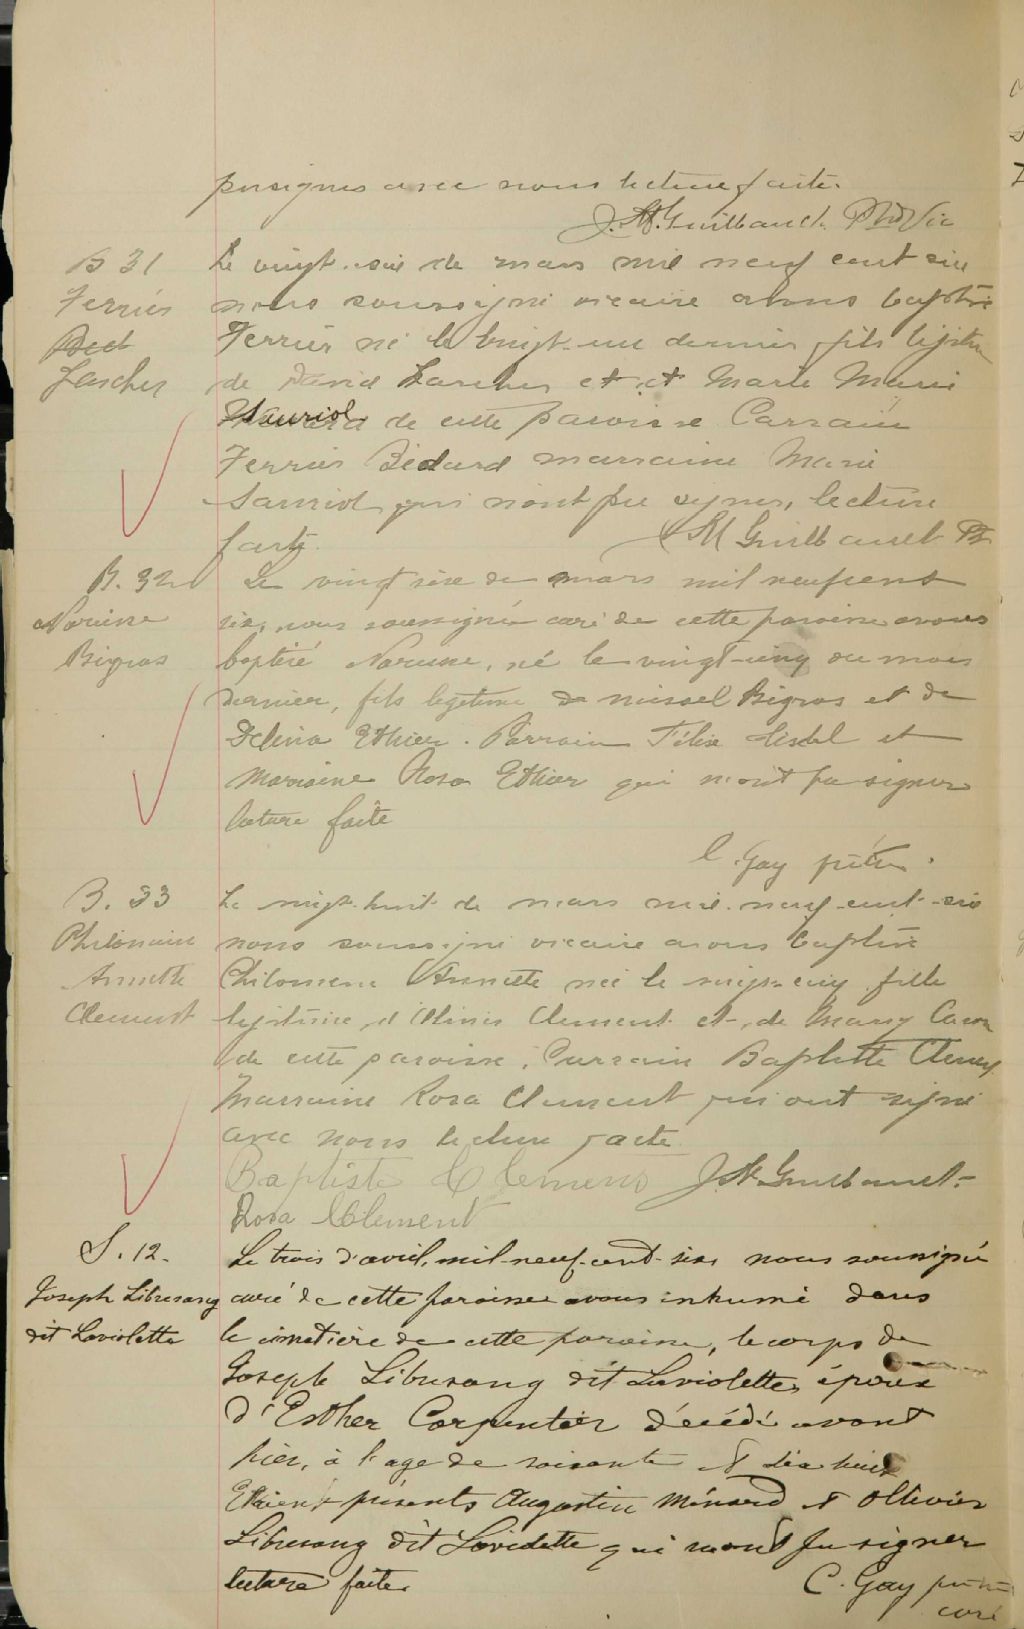 persignes avec nous lecture faite.
J. A. Guilbault Ptre Vic
B 31
Ferrier
Larcher
Le vingt-six de mars mil neuf cent six
nous soussigné vicaire avons baptisé
Ferrier né le vingt-un dernier, fils légitime
de David Larcher et et Marie Marie
Sauriol de cette paroisse Parrain
Ferrier Bédard marraine Marie
Sauriol qui n'ont pu signer, lecture
faite. Guilbault Ptr
B. 32
Narcisse
Bigras
Le vingt six de mars mil neuf cent
six, nous soussigné curé de cette paroisse avons
baptisé Narcisse, né le vingt-cinq du mois
dernier, fils legitime de Bigras et de
Delina Ethier. Parrain Félix et
Marraine Rosa Ethier qui n'ont pu signer
lecture faite
C. Gay prêtre.
B. 33
Philomène
Annette
Clement
Le vingt-huit de mars mil-neuf-cent-six
nous soussigné vicaire avons baptisé
Philomene Annette née le vingt-cinq fille
legitime d'Olivier Clement et de Mary Caron
de cette paroisse, Parrain Baptiste Clement
Marraine Rosa Clement qui ont signé
avec nous lecture faite.
Baptiste Clemens J. A. Guilbault
Rosa Clement
S. 12.
Joseph Libersang
dit Laviolette
Le trois d'avril, mil-neuf-cent-six, nous soussigné
curé de cette paroisse avons inhumé dans
le cimetière de cette paroisse, le corps de
Joseph Libersang dit Laviolette, époux
d'Esther Carpentier décédé avant
hier, à l'age de soixante et dix huit
Etaient présents Augustin Ménard et Ollivier
Libersang dit Laviolette qui n'ont pu signer
lecture faite.
C. Gay prêtre
curé